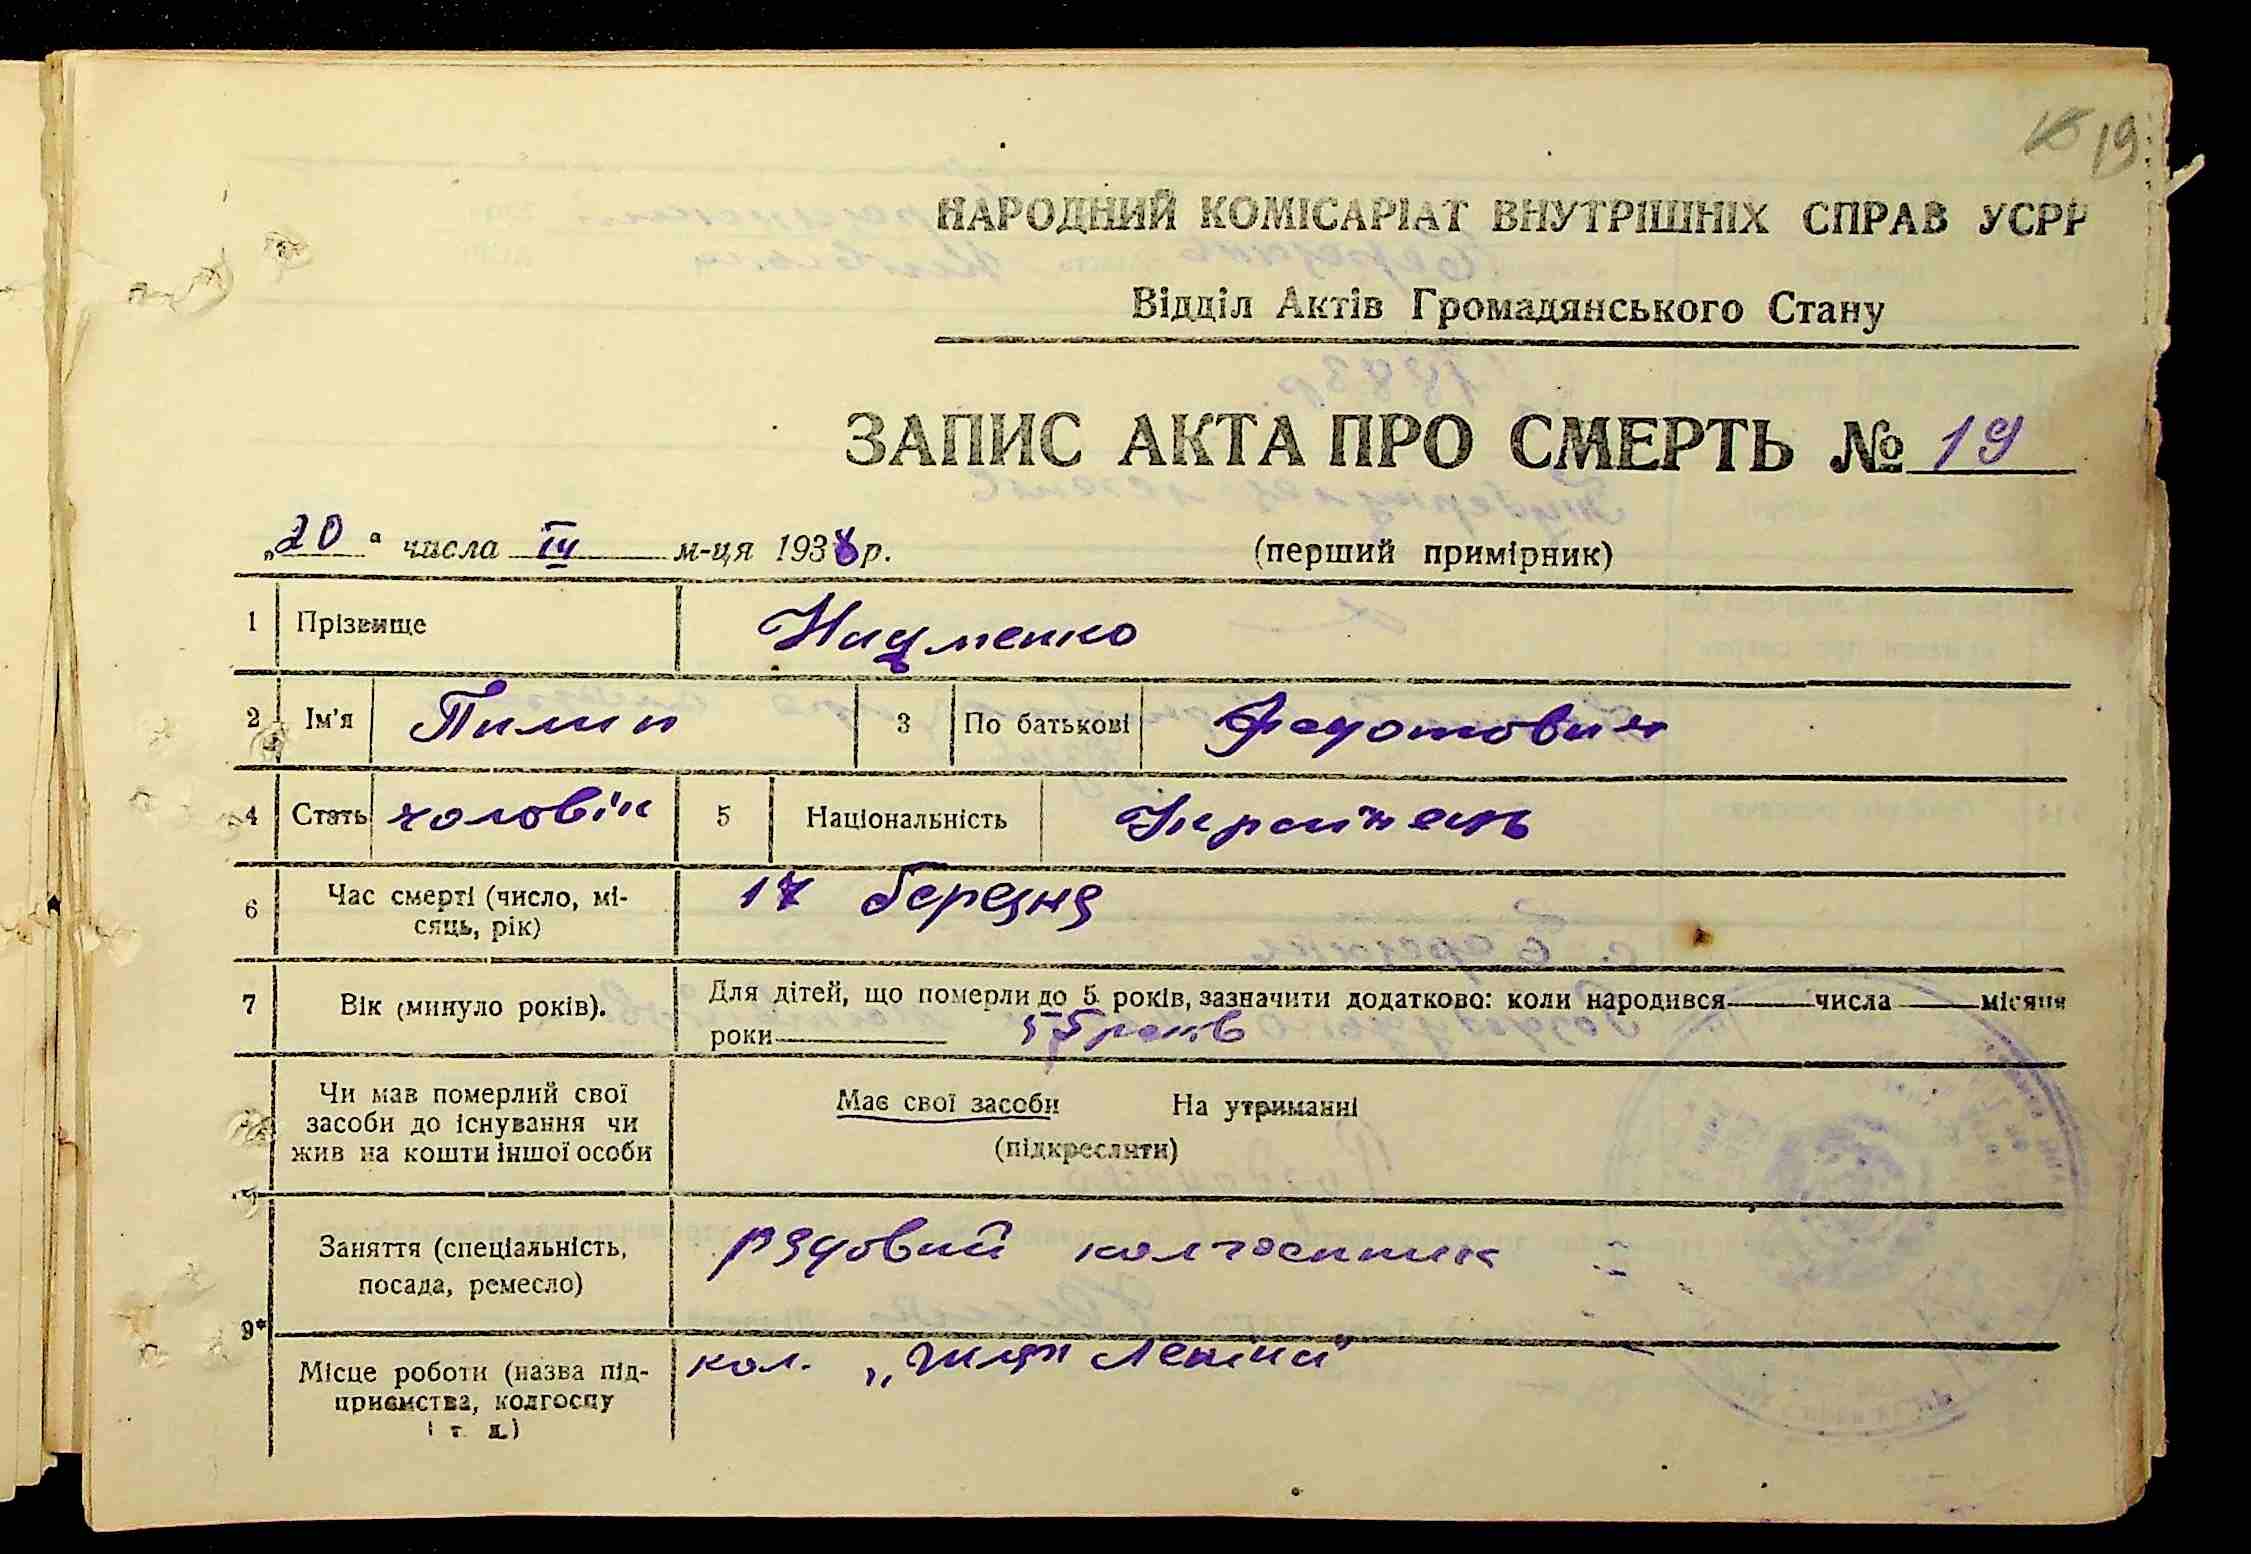 19
НАРОДНИЙ КОМІСАРІАТ ВНУТРІШНІХ СПРАВ УСРР
Відділ Актів Громадянського Стану
ЗАПИС АКТА ПРО СМЕРТЬ № 19
„20“ числа III м-ця 1938 р.
(перший примірник)
1 Прізвище Науменко
2 Ім'я Пилип 3 По батькові Федотович
4 Стать чоловік 5 Національність Українець
6 Час смерті (число, мі-
сяць, рік) 17 березня
7 Вік (минуло років). Для дітей, що померли до 5 років, зазначити додатково: коли народився числа місяця
роки 55 років
Чи мав померлий свої
засоби до існування чи
жив на кошти іншої особи
Має свої засоби На утриманні
(підкреслити)
Заняття (спеціальність,
посада, ремесло) рядовий колгоспник
9*
Місце роботи (назва під-
приємства, колгоспу
і т. д.)
кол. „ Леніна"